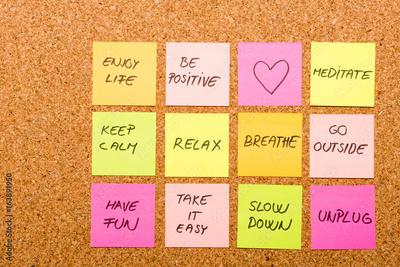 ENJOY
LIFE
BE
POSITIVE
MEDITATE
KEEP
CALM
RELAX
BREATHE
GO
OUTSIDE
HAVE
FUN
TAKE
IT
EASY
SLOW
DOWN
UNPLUG